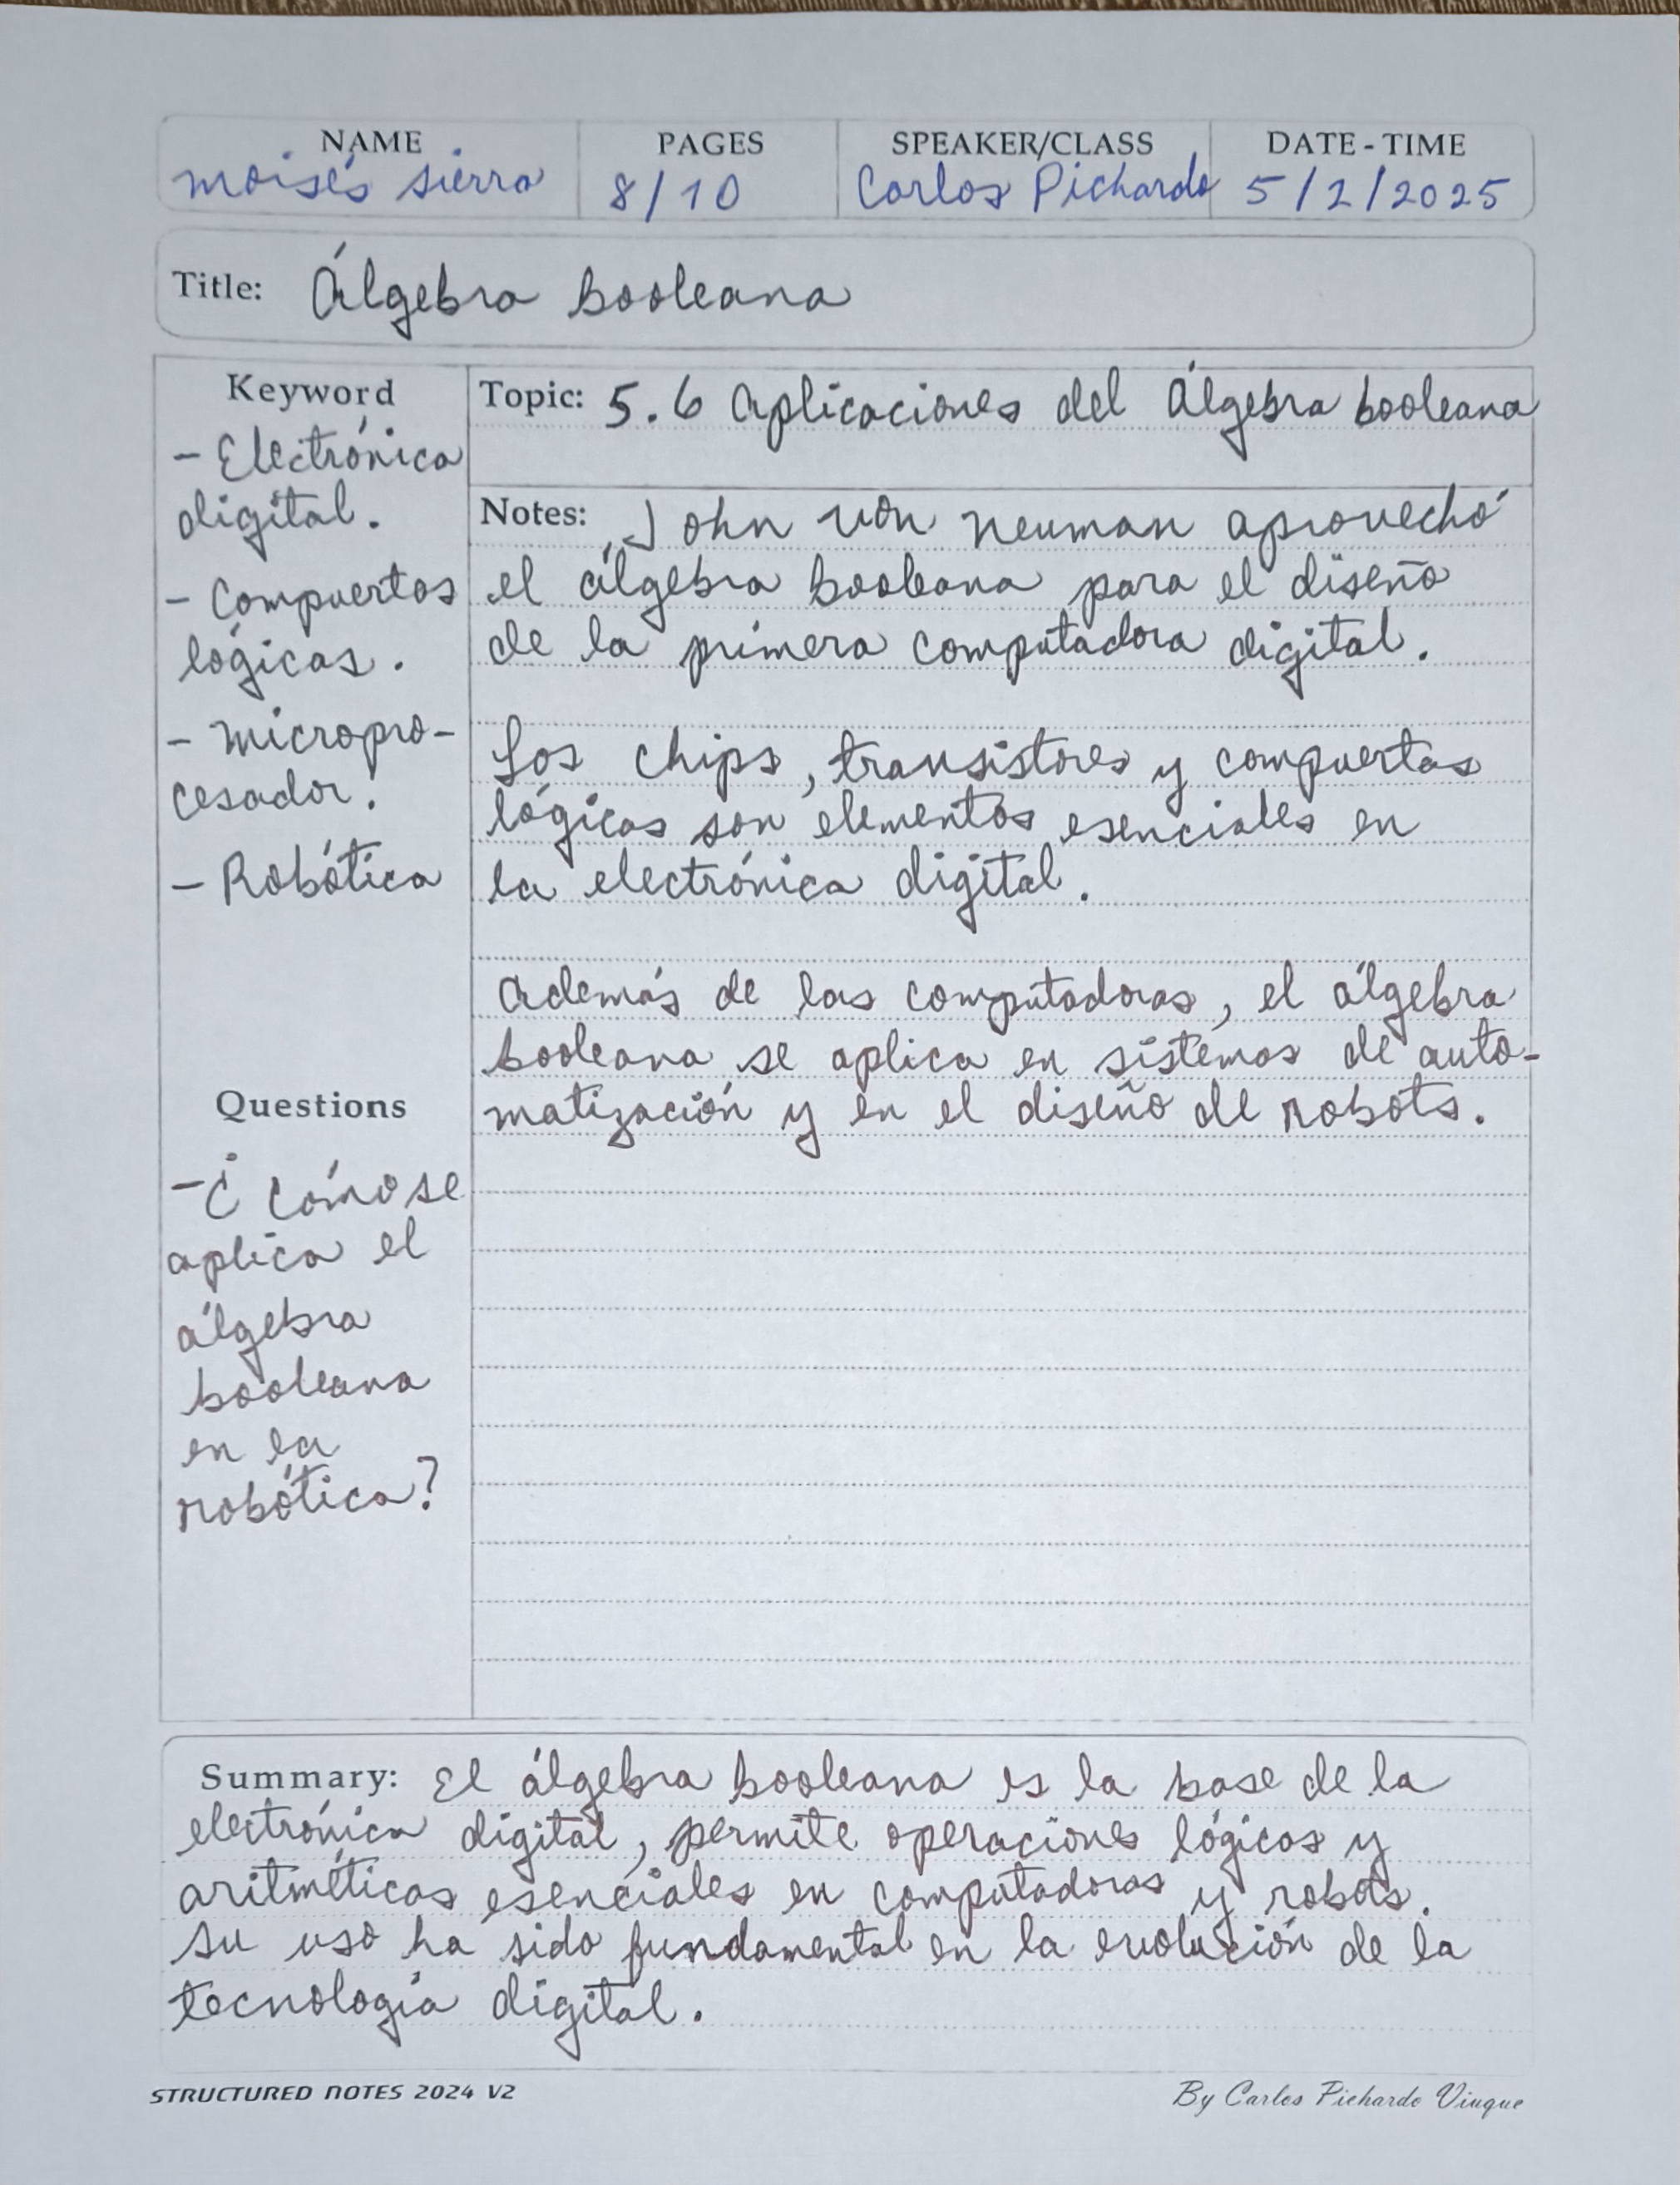 NAME PAGES SPEAKER/CLASS DATE-TIME
moisés sierra 8/10 Carlos Pichardo 5/2/2025
Title: Álgebra booleana
Keyword
- Electrónica
digital.
- Compuertas
lógicas.
- Micropro-
cesador.
- Robótica
Topic: 5.6 Aplicaciones del Álgebra booleana
Notes: John von neuman aprovechó
el álgebra booleana para el diseño
de la primera computadora digital.
Los chips, transistores y compuertas
lógicas son elementos esenciales en
la electrónica digital.
Además de las computadoras, el álgebra
booleana se aplica en sistemas de auto-
matización y en el diseño de robots.
Questions
- ¿Cómo se
aplica el
álgebra
booleana
en la
robótica?
Summary: El álgebra booleana es la base de la
electrónica digital, permite operaciones lógicas y
aritméticas esenciales en computadoras y robots.
Su uso ha sido fundamental en la evolución de la
tecnología digital.
STRUCTURED NOTES 2024 V2 By Carlos Pichardo Viuque